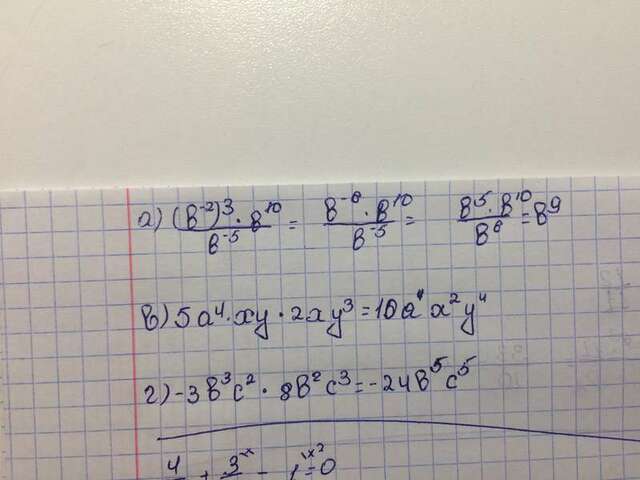 а) (в⁻²)³ · в¹⁰ / в⁻⁵ = в⁻⁶ · в¹⁰ / в⁻⁵ = в⁵ · в¹⁰ / в⁶ = в⁹
в) 5а⁴ · xy · 2xy³ = 10а⁴x²y⁴
г) -3в³c² · 8в²c³ = -24в⁵c⁵
4 + 3ˣ - 1ˣ² = 0